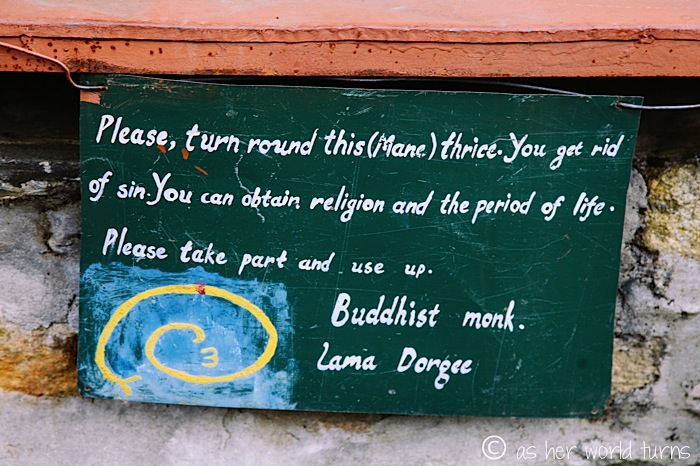 Please, turn round this (Mane) thrice. You get rid
of sin. You can obtain religion and the period of life.
Please take part and use up.
3
Buddhist monk.
Lama Dorgee
© as her world turns